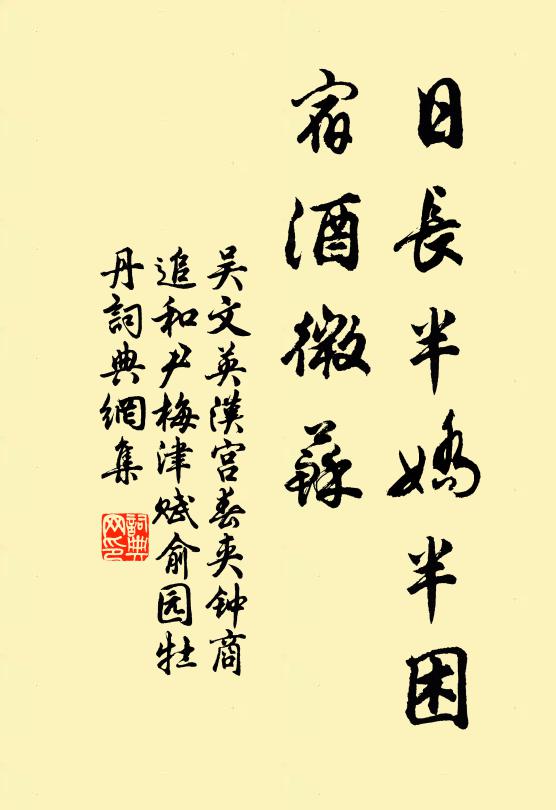 日長半嬌半困
宿酒微蘇
吴文英漢宫春夹钟商
追和尹梅津赋俞园牡
丹詞典網集
詞典
网印